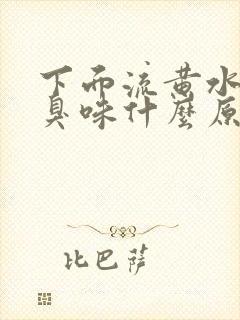 下而流黄水
臭味什麼原
比巴萨